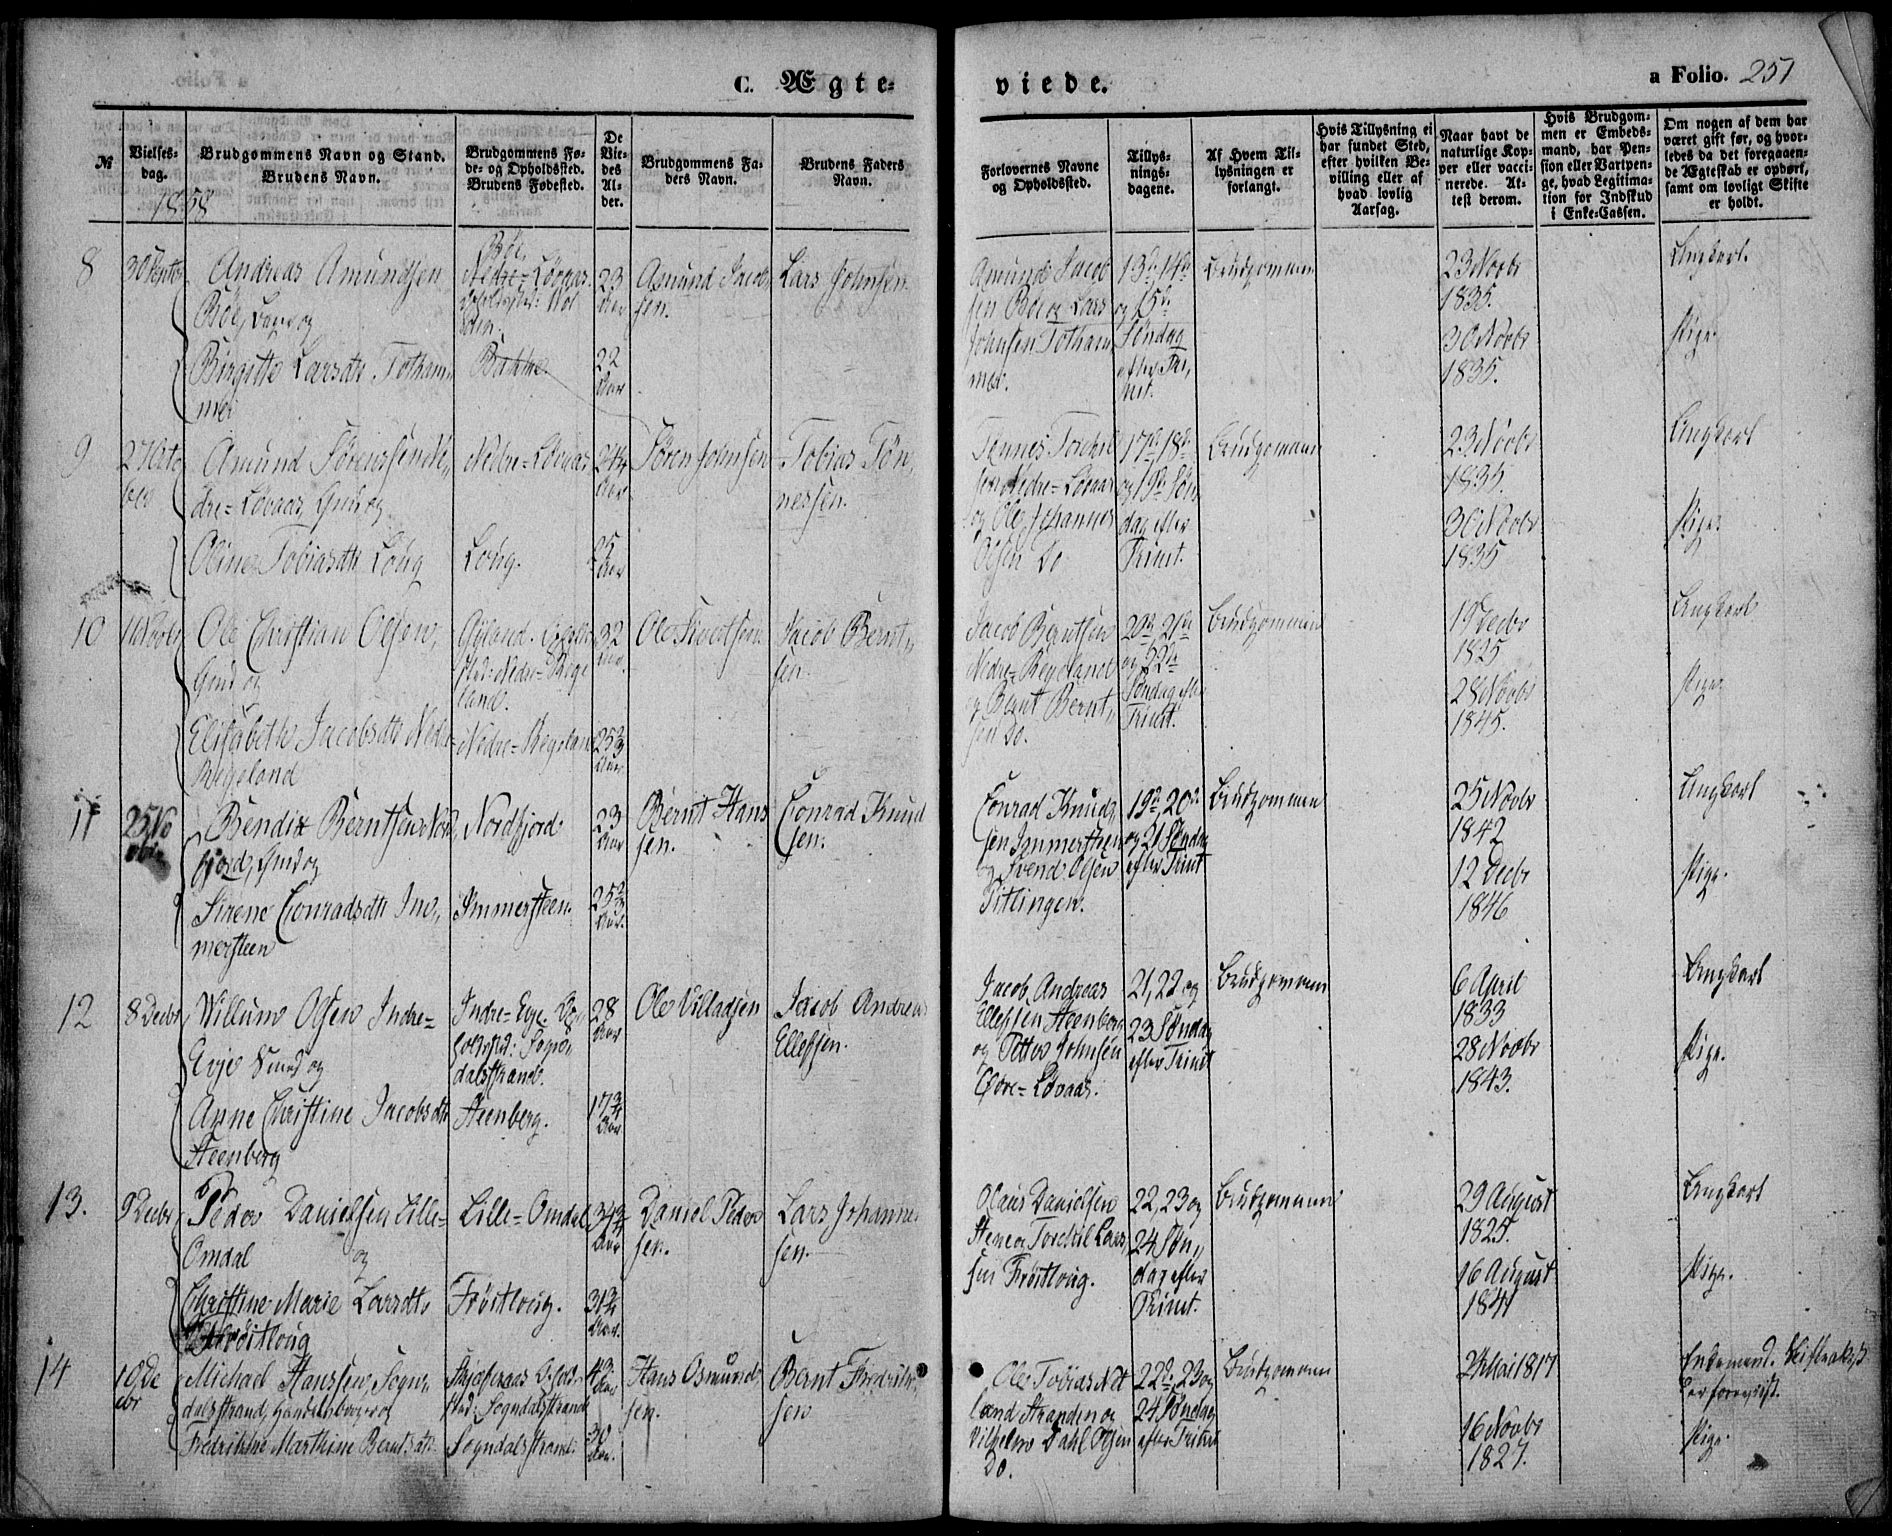 C. Ægte-
viede.
a Folio. 251
№
Vielses-
dag.
1858
Brudgommens Navn og Stand.
Brudens Navn.
Brudgommens Fø-
de- og Opholdsted.
Brudens Fødested.
De
Vie-
des
Al-
der.
Brudgommens Fa-
ders Navn.
Brudens Faders
Navn.
Forlovernes Navne
og Opholdsted.
Tillys-
nings-
dagene.
Af Hvem Til-
lysningen er
forlangt.
Hvis Tillysning ei
har fundet Sted,
efter hvilken Be-
villing eller af
hvad lovlig
Aarsag.
Naar havt de
naturlige Kop-
per eller vacci-
nerede. At-
test derom.
Hvis Brudgom-
men er Embeds-
mand, har Pen-
sion eller Vartpen-
ge, hvad Legitima-
tion for Indskud
i Enke-Cassen.
Om nogen af dem har
været gift før, og hvor-
ledes da det foregaaen-
de Ægteskab er ophørt,
samt om lovligt Skifte
er holdt.
8
Andreas Amundsen
Böe,
og
Birgitte Larsdtr Totham,,
mer
Böe,
Nedre=Lövaas.
Bakke.
23
Aar
22
Aar
Amund Jacob
sen.
Lars Johnsen
Amund Jacob
sen Böe og Lars
Johnsen Totham,,
mer.
13de, 14de
og 15de
Söndag
efter Tri,,
nit.
Brudgommen
23 Novbr
1835.
30 Novbr
1835.
Ungkarl.
Pige.
9
27 Octo
ber
Amund Sörenssen Ne,,
dre=Lövaas, og
Oline Tobiasdtr Löug
Nedre=Lövaas
Löug.
24
Aar
25
Aar
Sören Johnsen
Tobias Tön,,
nessen.
Tönnes Torkels
sen Nedre=Lövaas
og Ole Johannes
Olsen Do
17de 18de
og 19de Sön
dag efter
Trinit.
Brudgommen
23 Novbr
1835.
30 Novbr
1835
Ungkarl
Pige
10
Novbr
Ole Christian Olsen,
og
Elisabeth Jacobsdtr Nedre=
Regeland
Nedre=Rege
land.
Nedre=Regeland
32
Aar.
25¾
Aar
Ole Sivertsen.
Jacob Bernt,,
sen.
Jacob Berntsen
Nedre=Regeland
og Bernt Bernt,,
sen Do.
20de, 21de
og 22de
Söndag efter
Trinit.
Brudgommen
19 Decbr
1825
28 Novbr
1845.
Ungkarl
Pige
11
25 No
vbr.
Bendix Berntsen Nord
fjord, og
Sirene Conradsdtr Im,,
mersteen
Nordfjord
Immersteen.
23
Aar
25¾
Aar.
Bernt Hans
sen.
Conrad Knud
sen.
Conrad Knud,,
sen Immersteen
og Svend Olsen
Titlingen.
19de, 20de
og 21 Söndag
efter Trinit
Brudgommen
25 Novbr
1842
12 Decbr
1846
Ungkarl
Pige.
12
8 Decbr
Willum Olsen Indre=
Evje og
Anne Christine Jacobsdtr
Steenberg
Indre=Evje. Op
holdsted: Sogn,,
dalsstrand.
Steenberg.
28
Aar
17¾
Aar
Ole Villadsen
Jacob Andreas
Ellefsen.
Jacob Andreas
Ellefsen Steenberg
og Petter Johnsen
Övre=Lövaas.
21, 22 og
23 Söndag
efter Trinit
Brudgommen
6 April
1833
28 Novbr
1843.
Ungkarl
Pige.
13.
9 Decbr
Peder Danielsen Lille=
Omdal og
Christine Marie Larsdtr
Fröitloug
Lille=Omdal
Fröitloug.
34¾
Aar
31¾
Aar.
Daniel Peder
sen.
Lars Johannes
sen.
Olaus Danielsen
Stene og Torckil Lars,,
sen Fröitloug.
22, 23 og
24 Sön,,
dag efter
Trinit.
Brudgommen
29 August
1825.
16 August
1841
Ungkarl
Pige.
14
10 De
cbr
Michael Hanssen, Sogn,,
dalsstrand, Handelsborger og
Fredrikke Marthine Berntsdtr.
Opholds,,
sted: Sogndalsstrand
Sogndalsstrand.
43
Aar
30
Aar.
Hans Osmunds
sen.
Bernt Fredrik
sen
Ole Tobias Net
land Stranden og
Vilhelm Dahl Olsen
Do.
22de, 23 og
24 Söndag
efter Trinit
Brudgommen
1817
16 Novbr
1827.
Enkemand. Skifteattest
Pige.